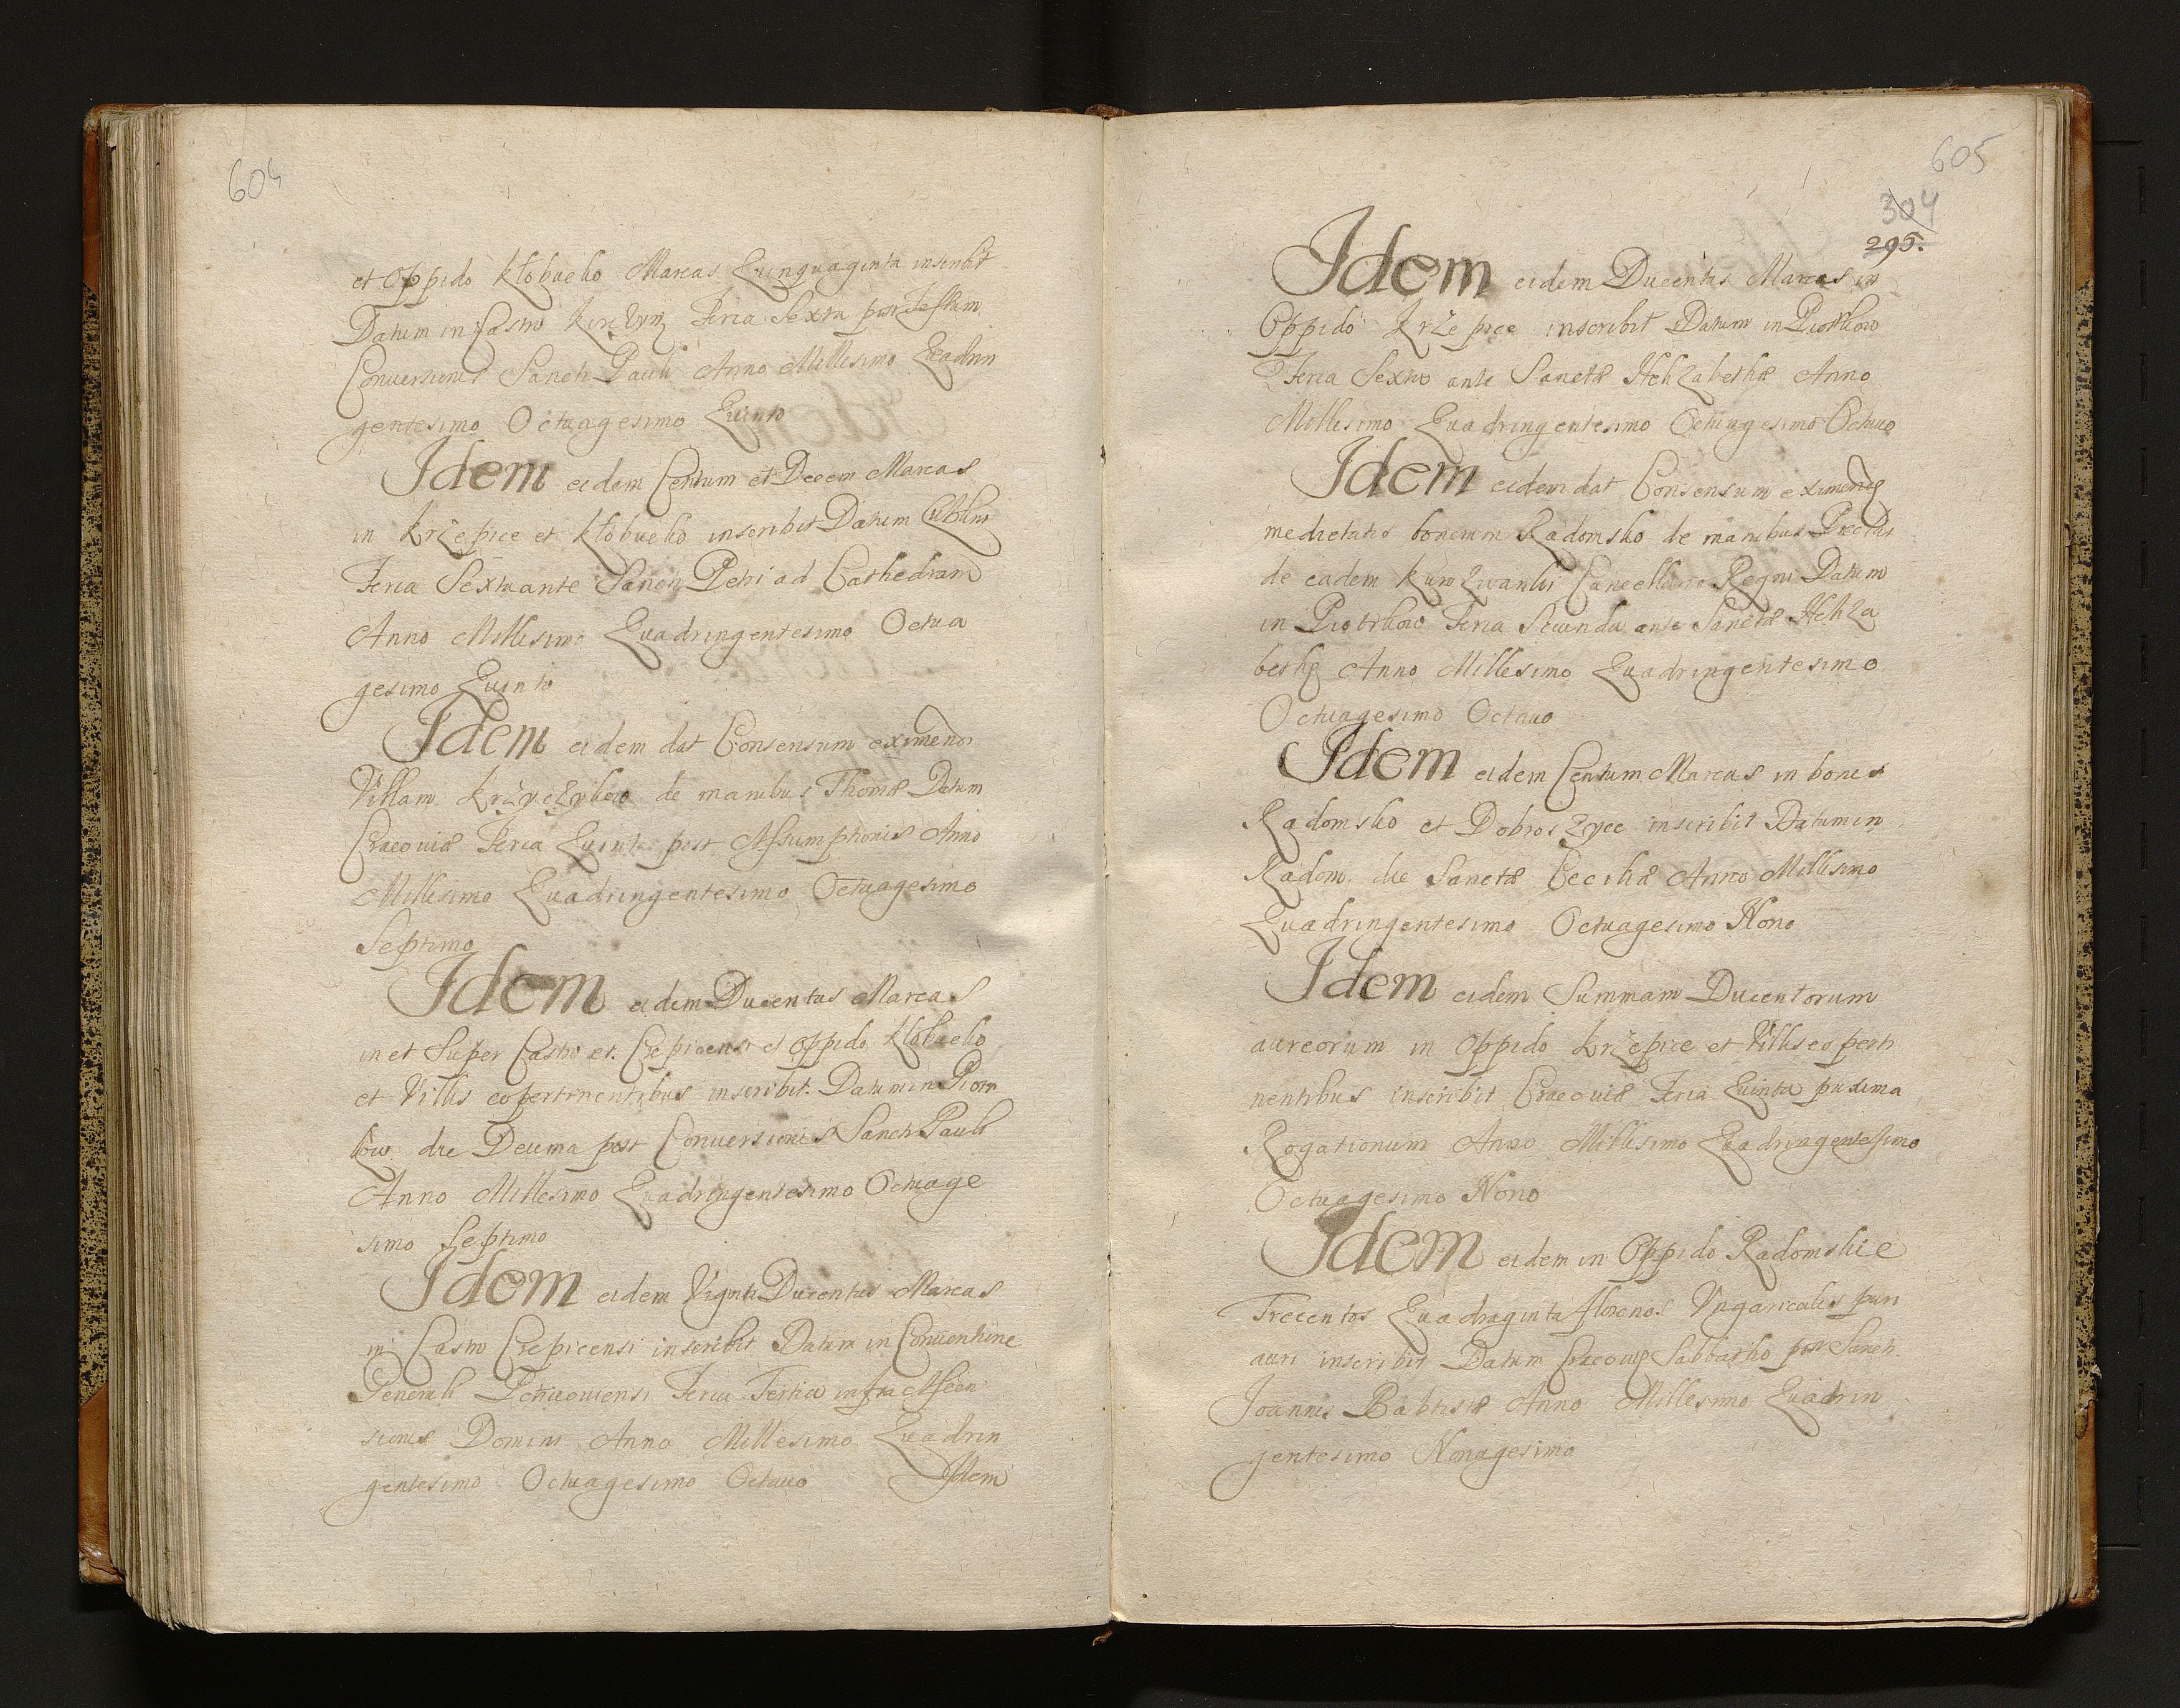 604
et Oppido Kłobucko Marcas Quinquaginta inscribit
Datum in Castro Feria Sexta post Festum
Conversionis Sancti Pauli Anno Millesimo Quadrin
gentesimo Octuagesimo Quinto
Idem eidem Centum et Decem Marcas
in Krżepice et Kłobucko inscribit Datum
Feria Sexta ante Sancti Petri ad Cathedram
Anno Millesimo Quadringentesimo Octua
gesimo Quinto
Idem eidem dat Consensum eximendi
Villam Krżyczykow de manibus Thomæ Datum
Cracoviæ Feria Quinta post Assumptionis Anno
Millesimo Quadringentesimo Octuagesimo
Septimo
Idem eidem Ducentas Marcas
in et Super Castro et Crepicensi et Oppido Kłobucko
et Villis eo pertinentibus inscribit. Datum in Piotr
kow die Decima post Conversionis Sancti Pauli
Anno Millesimo Quadringentesimo Octuage
simo Septimo
Idem eidem Viginti Ducentas Marcas
in Castro Crepicensi inscribit Datum in Conventione
Generali Feria Tertia infra Ascen
sionis Domini Anno Millesimo Quadrin
gentesimo Octuagesimo Octavo Idem
605
304
295.
Idem eidem Ducentas Marcas in
Oppido Krżepice inscribit Datum in Piotrkow
Feria Sexta ante Sanctæ Helzabethæ Anno
Millesimo Quadringentesimo Octuagesimo Octavo
Idem eidem dat Consensum eximendę
medietatis bonorum Radomsko de manibus
de eadem Kurozwanki Cancellario Regni Datum
in Piotrkow Feria Secunda ante Sanctæ Helza
bethę Anno Millesimo Quadringentesimo
Octuagesimo Octavo
Idem eidem Centum Marcas in bonis
Radomsko et Dobroszyce inscribit Datum in
Radom die Sanctæ Ceciliæ Anno Millesimo
Quadringentesimo Octuagesimo Nono
Idem eidem Summam Ducentorum
aureorum in Oppido Krżepice et Villis eo perti
nentibus inscribit Cracoviæ Feria Quinta proxima
Rogationum Anno Millesimo Quadringentesimo
Octuagesimo Nono
Idem eidem in Oppido Radomskie
Trecentos Quadraginta florenos Vngaricales puri
auri inscribit Datum Cracovię Sabbatho post Sancti
Joannis Babtistæ Anno Millesimo Quadrin
gentesimo Nonagesimo